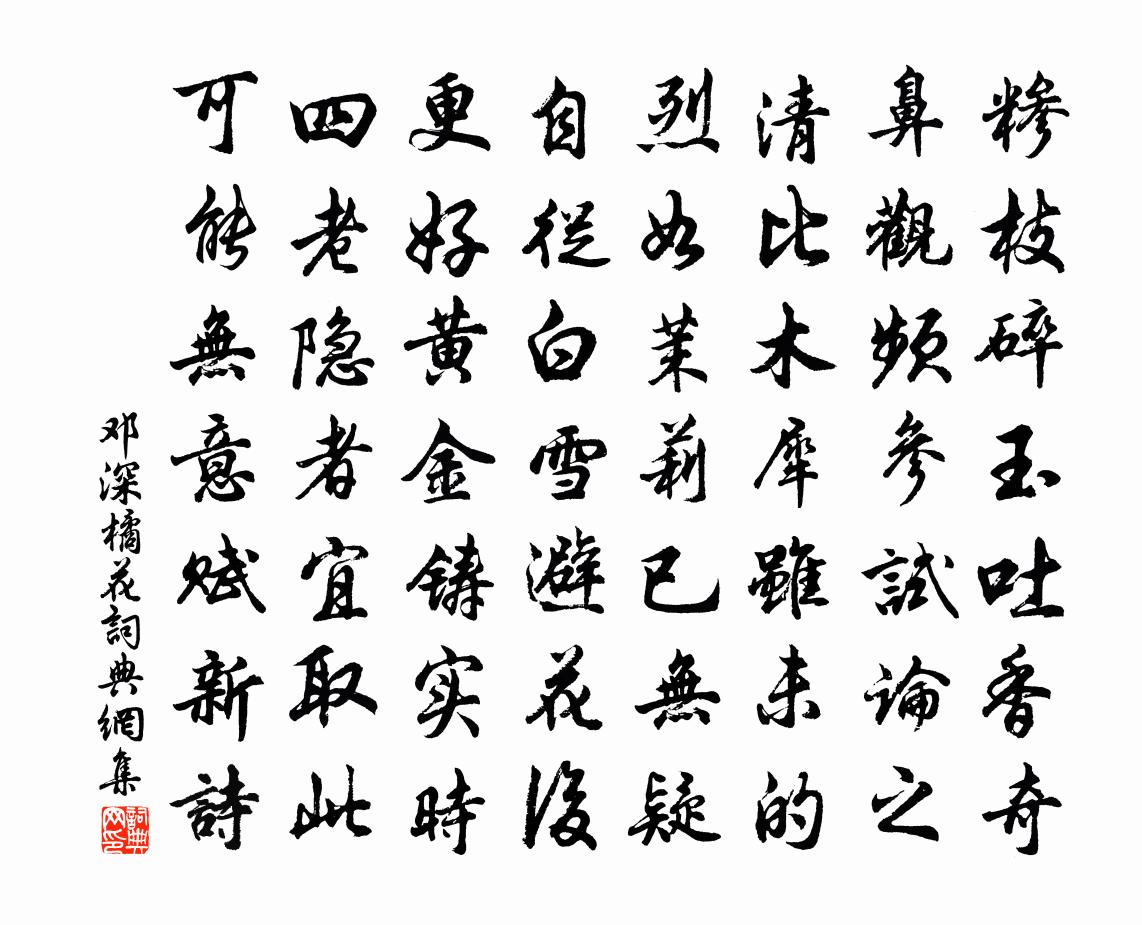 糝枝碎玉吐香奇
鼻觀頻參試論之
清比木犀雖未的
烈如茉莉已無疑
自從白雪避花後
更好黃金鑄实時
四老隐者宜取此
可能無意賦新詩
邓深橘花詞典網集
詞典
网印